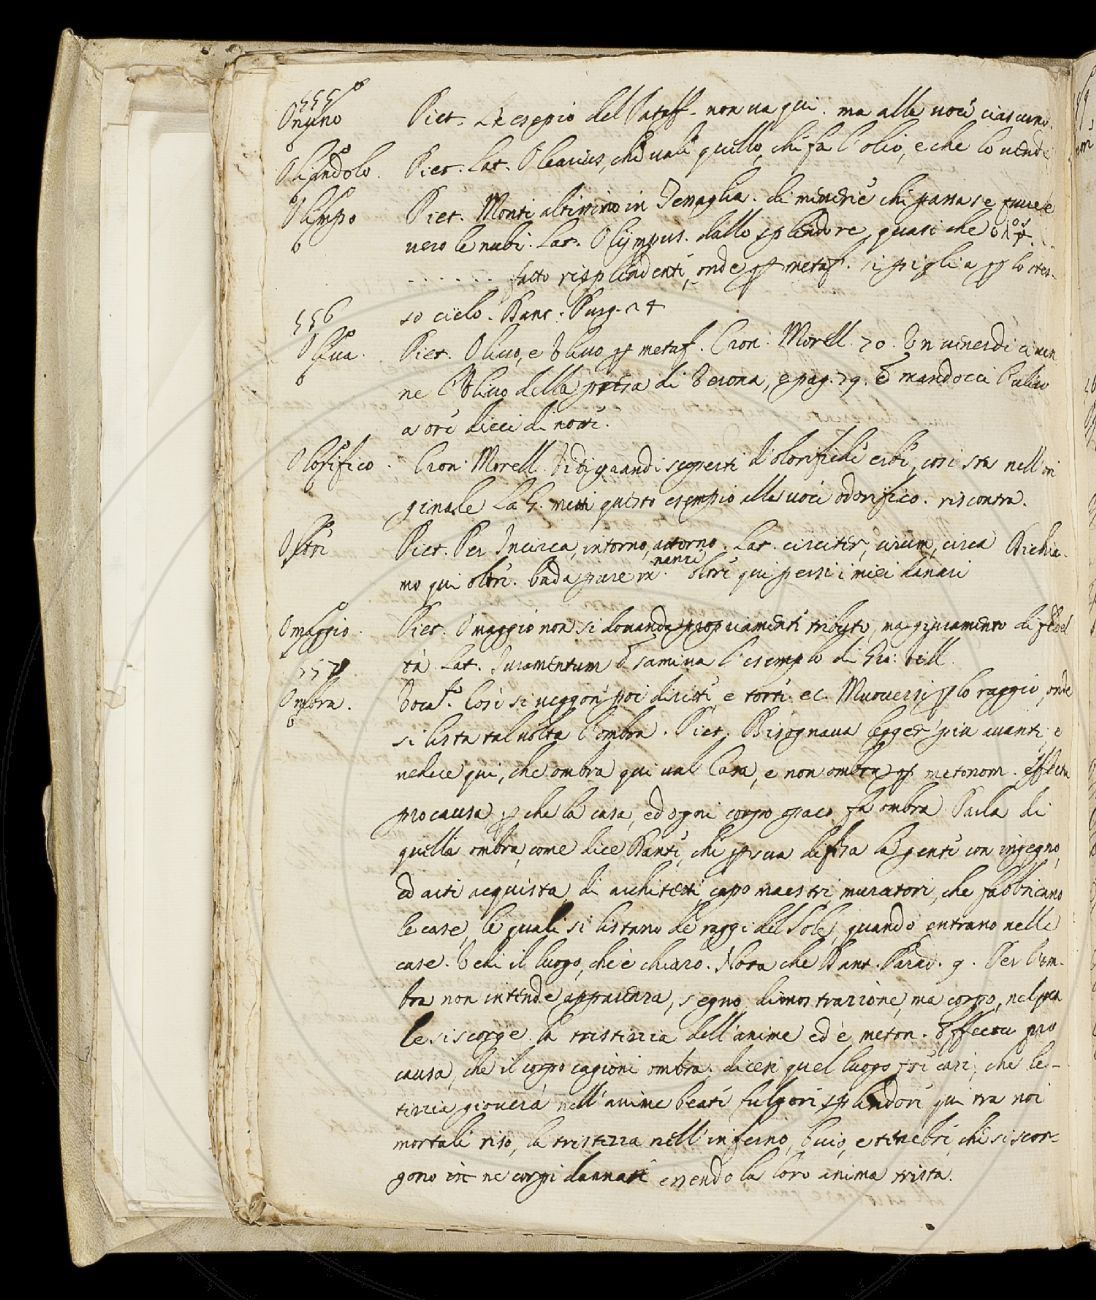 555
Ognuno Piet. L'esepio del Pataff. non va qui. ma alla voce ciascuno.
Oliandolo. Piet. Lat. Olearius, che vale quello, che fa l'olio, e che lo vende
Olimpo Piet. Monti altissimo in Tessaglia. di maniere che passasse
vero le nubi. Lat. Olijmpus. dallo splendore, quasi che
. . . . . . tutto risplendente, onde p metaf. si piglia p lo stes-
556
so cielo. Dant. Purg. 24
Oliva. Piet. Olivo, e Ulivo p metaf. Cron. Morell. 70. Un venerdì ci ven
ne l'Ulivo della presa di Verona, e pag. 79. E mandocci l'ulivo
a ore dieci di notte.
Olorifico. Cron. Morell. Vedi grandi segreti d'olorifiche erbe, così sta nell'ori
ginale La G. mette questo esempio alla voce odorifico. riscontra.
Oltre Piet. Per Incirca, intorno, attorno. Lat. circiter, circum, circa Dichia-
mo qui oltre. bada pure in nanzi oltre qui persi i miei danari
Omaggio. Piet. Omaggio non si domanda propriamente tributo, ma giuramento di fedel
557
tà. Lat. Juramentum Esamina l'esemplo di Gio: Vill.
Ombra. Boca. Così si veggon poi diritte, e torte ec. Muoversi p lo raggio, onde
si lista tal volta l'ombra. Piet. Bisognava legger più avanti e
vedere qui, che ombra qui val Casa, e non ombra p metonom. effetto
pro causa p che la casa, ed ogni corpo opaco fa ombra Parla di
quella ombra, come dice Dante, che p sua difesa la gente con ingegno
ed arte acquista, di architetti capo maestri, muratori, che fabbricano
le case, le quali si listano de raggi del Sole, quando entrano nelle
case. Vedi il luogo, che è chiaro. Nota che Dant. Parad. 9. Per l'om-
bra non intende apparenza, segno, dimostrazione, ma corpo, nel qua
le si scorge la tristizia dell'anime ed è meton. Effectu pro
causa, che il corpo cagioni ombra. diceri quel luogo fore così, che le-
tizia gioverà nell'anime beate fulgori splendori qui tra noi
mortali riso, la tristizia nell'inferno, buio, e tenebre, che si scor-
gono ne corpi dannati essendo la loro anima trista.